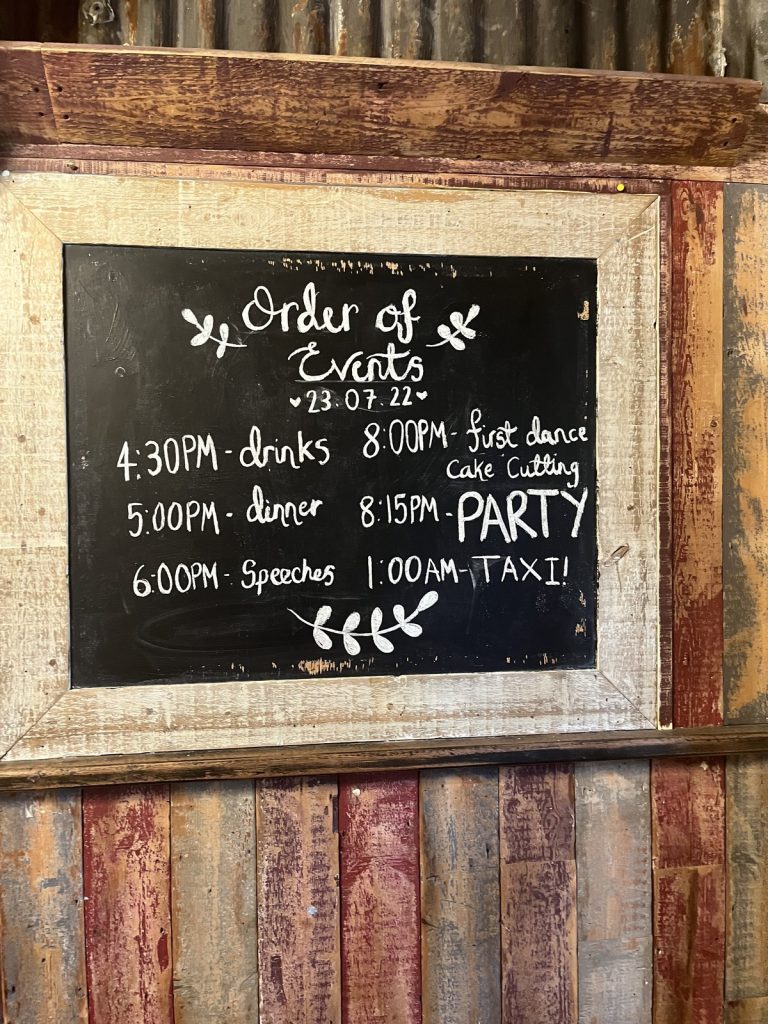 Order of
Events
♥23.07.22♥
4:30PM - drinks
5:00PM - dinner
6:00PM - Speeches
8:00PM - first dance
Cake Cutting
8:15PM - PARTY
1:00AM - TAXI!